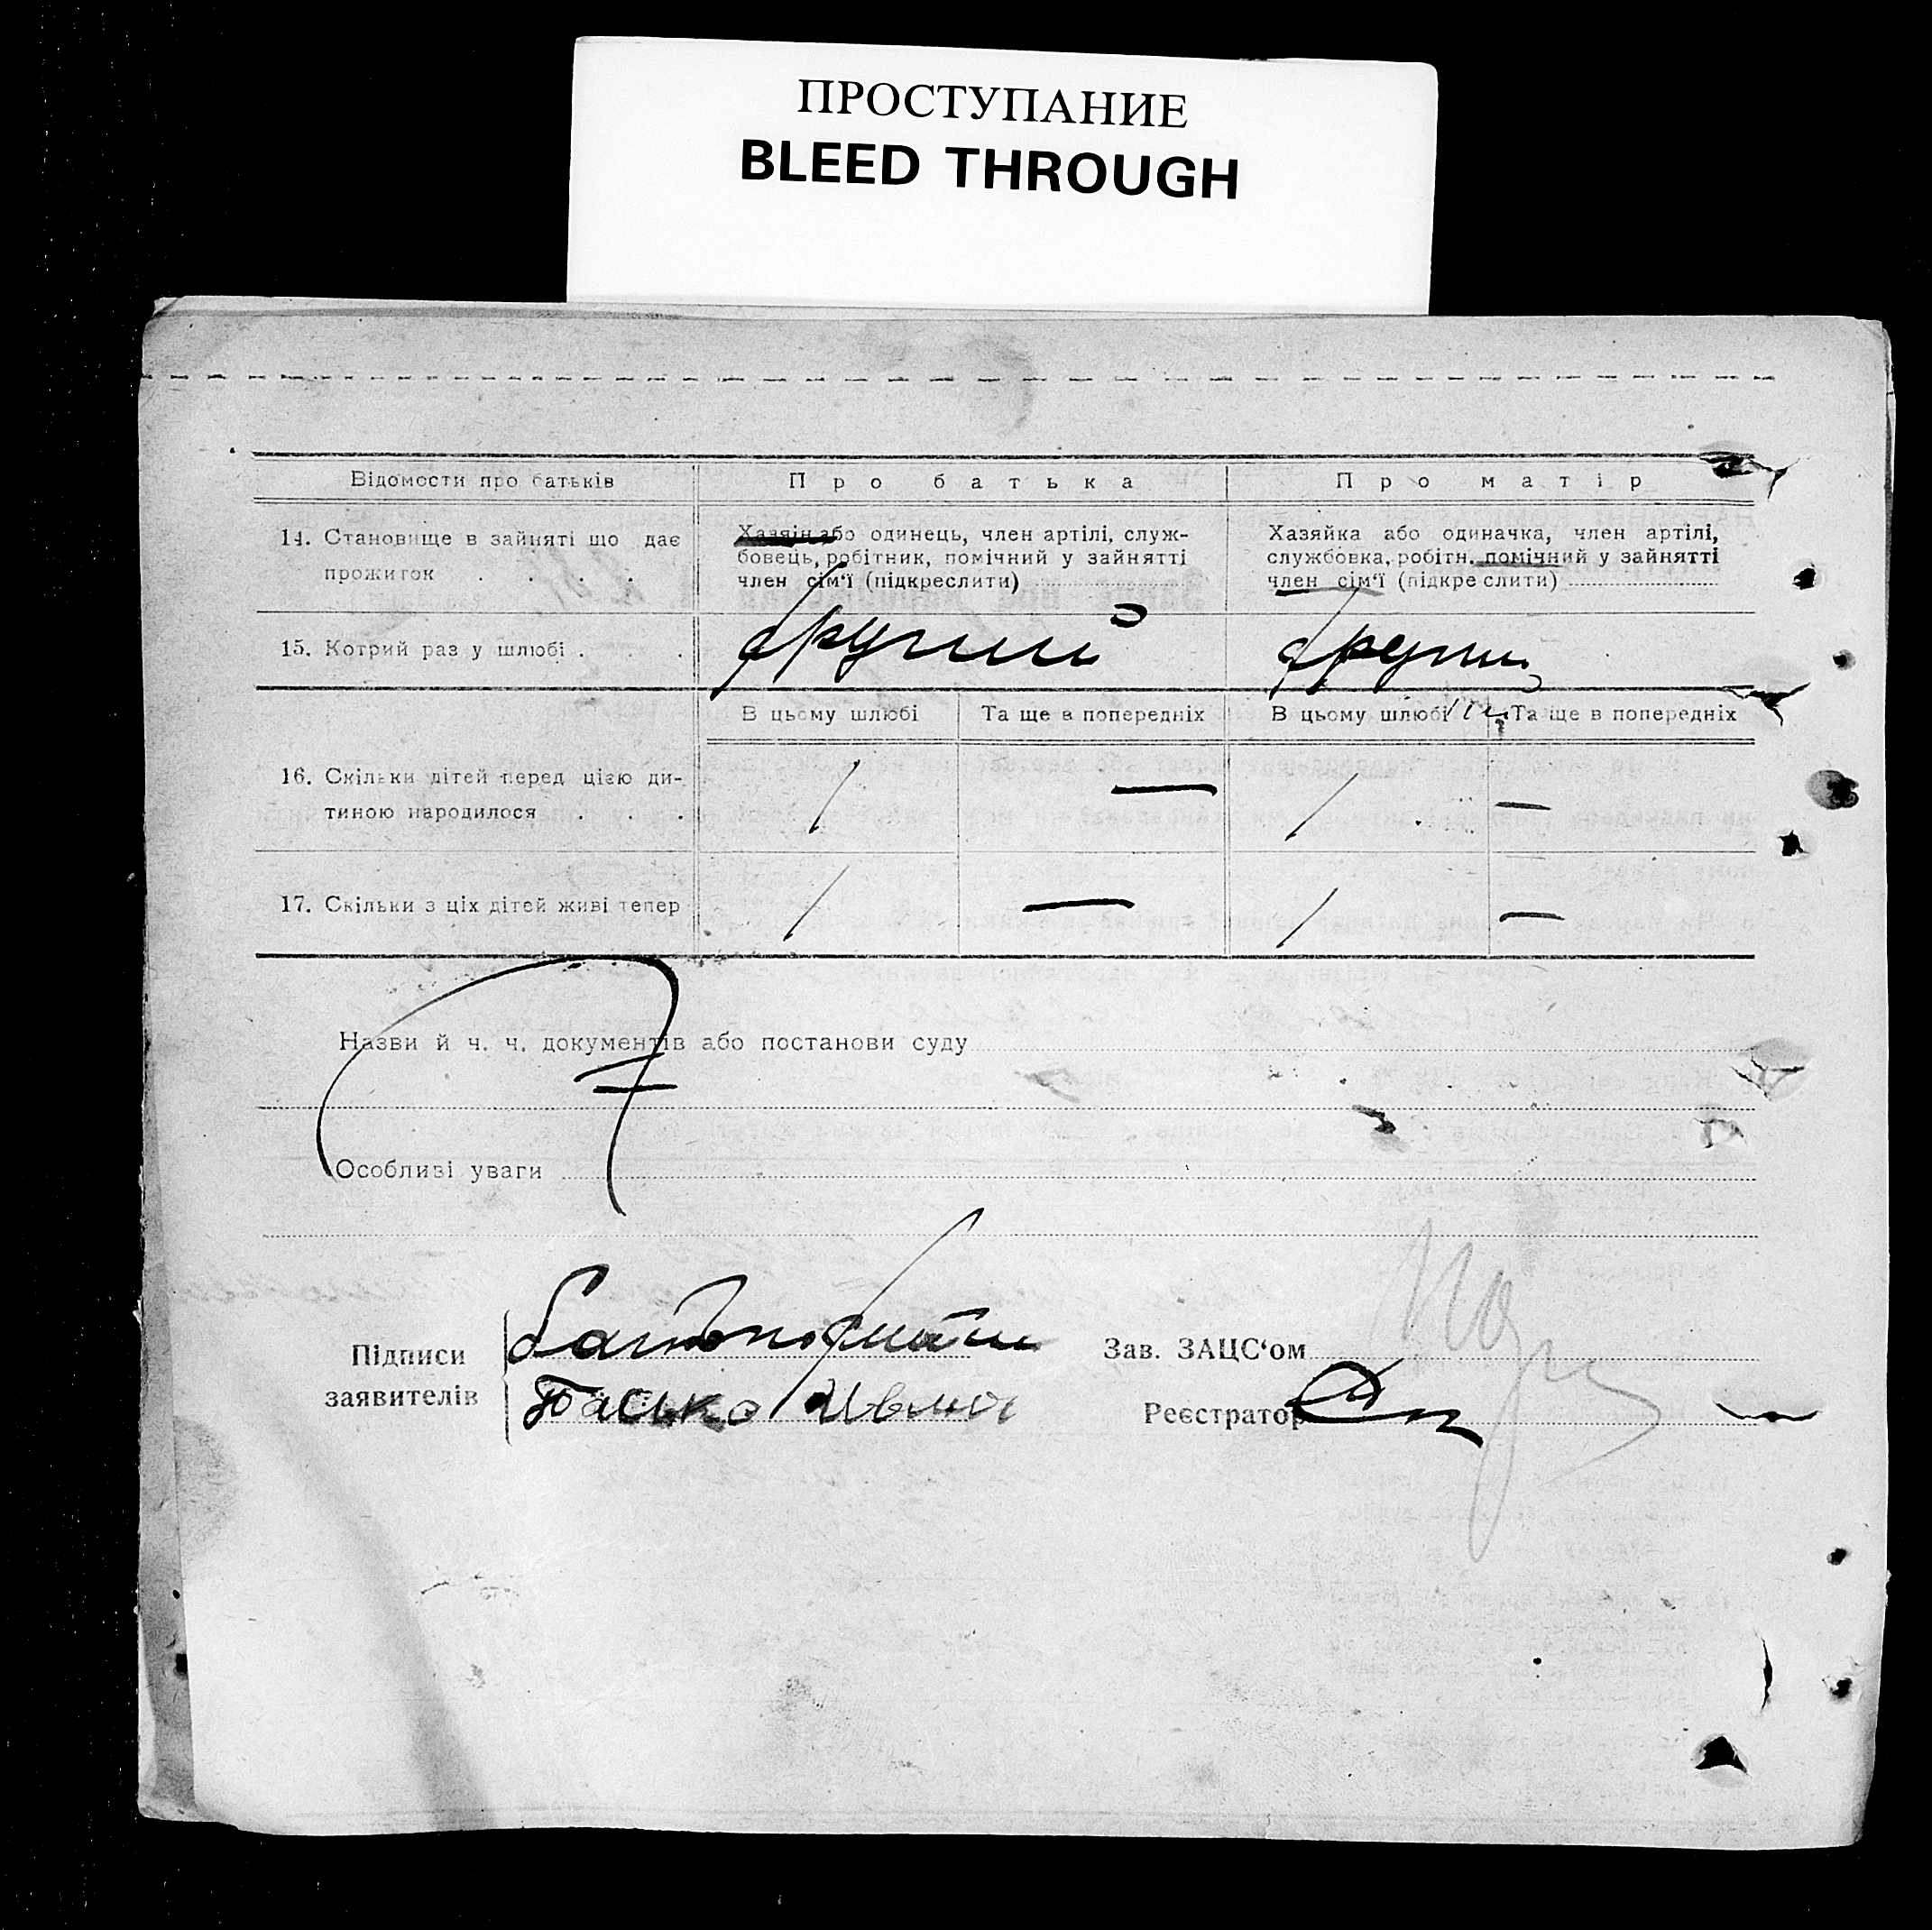 ПРОСТУПАНИЕ
BLEED THROUGH
Відомости про батьків
Про батька
Про матір
14. Становище в зайняті що дає
прожиток . . . .
Хазяін або одинець, член артілі, служ-
бовець, робітник, помічний у зайнятті
член сім'ї (підкреслити)
Хазяйка або одиначка, член артілі,
службовка, робітн. помічний у зайнятті
член сім'ї (підкреслити)
15. Котрий раз у шлюбі . . .
другий
В цьому шлюбі
Та ще в попередніх
В цьому шлюбі
Та ще в попередніх
16. Скільки дітей перед цією ди-
тиною народилося . . .
1 — 1 —
17. Скільки з ціх дітей живі тепер
1 — 1 —
Назви й ч. ч. документів або постанови суду
Особливі уваги
Підписи
заявителів
Батько
Зав. ЗАЦС‘ом
Реєстратор